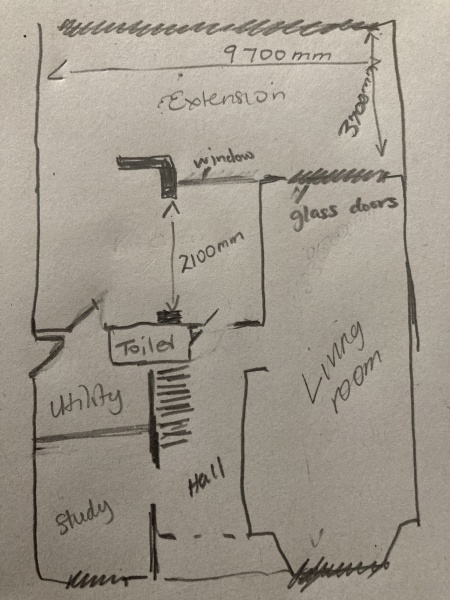 9700mm
Extension
3700mm
window
glass doors
2100mm
Toilet
Living
room
Utility
Hall
Study